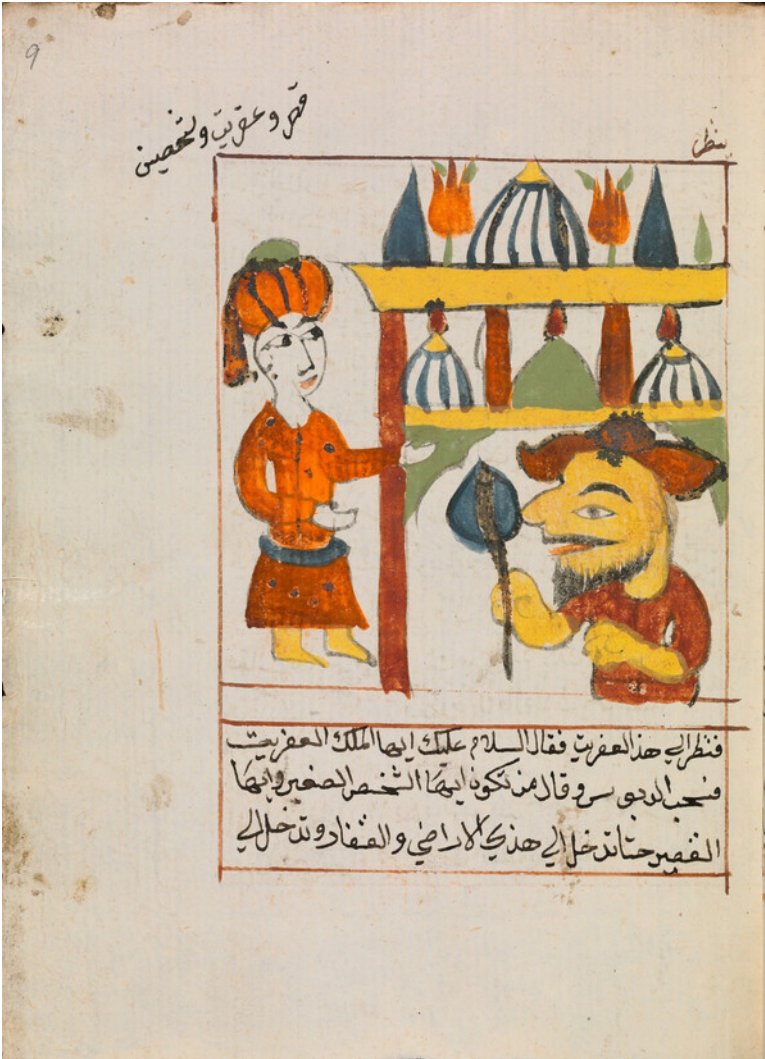 9
قصر وعفريت ولتحصين
ينظر
فنظر الي هذ العفريت فقال السلام عليك ايها الملك العفريت
فسحب الدبوس وقال من تكون ايها الشخص الصغير وايها
القصير حتا تدخل الي هذي الاراضي والقفار وتدخل الي